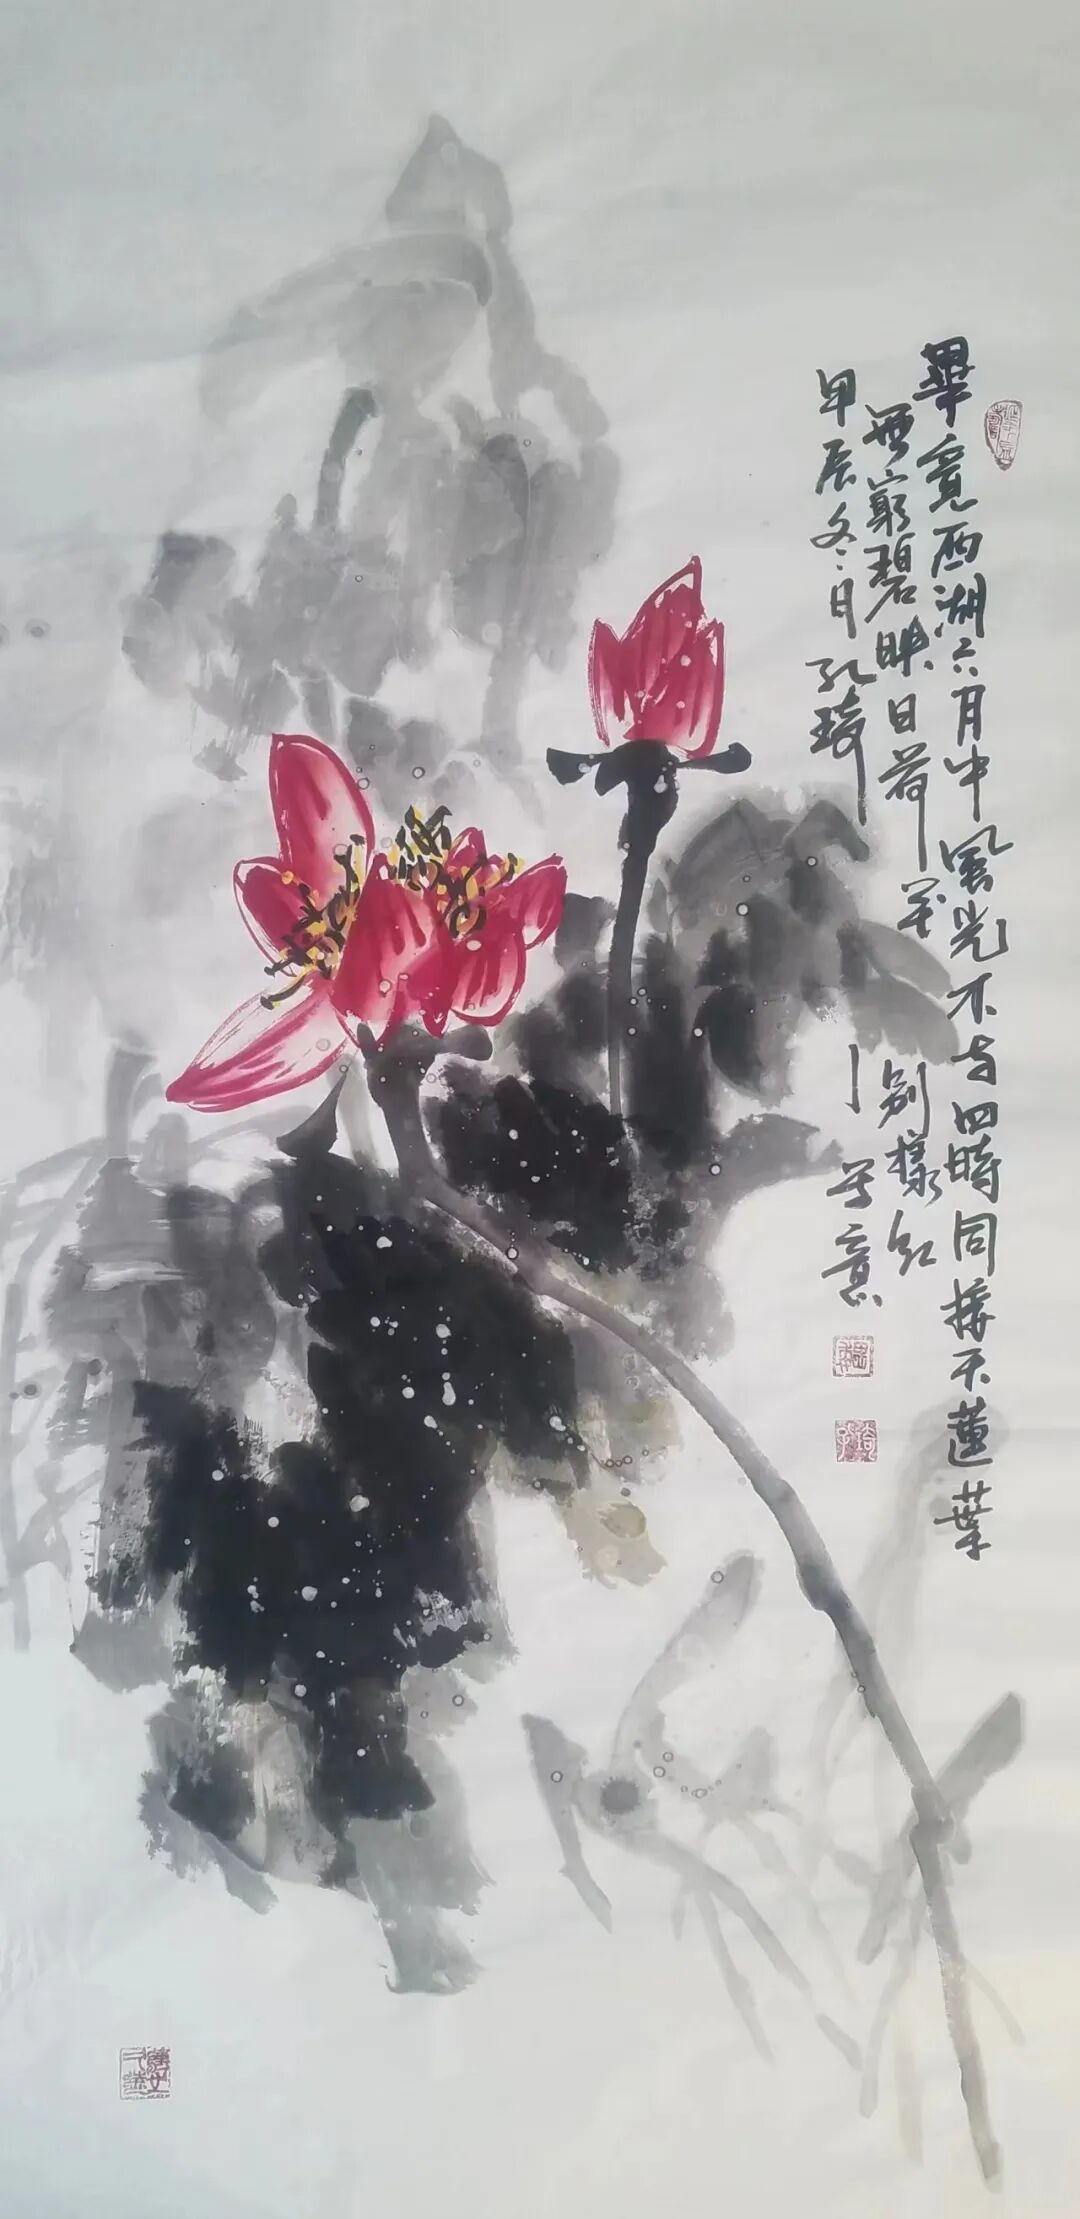 畢竟西湖六月中風光不与四時同接天蓮葉
無窮碧映日荷花別樣紅
甲辰冬月孔琦寫意